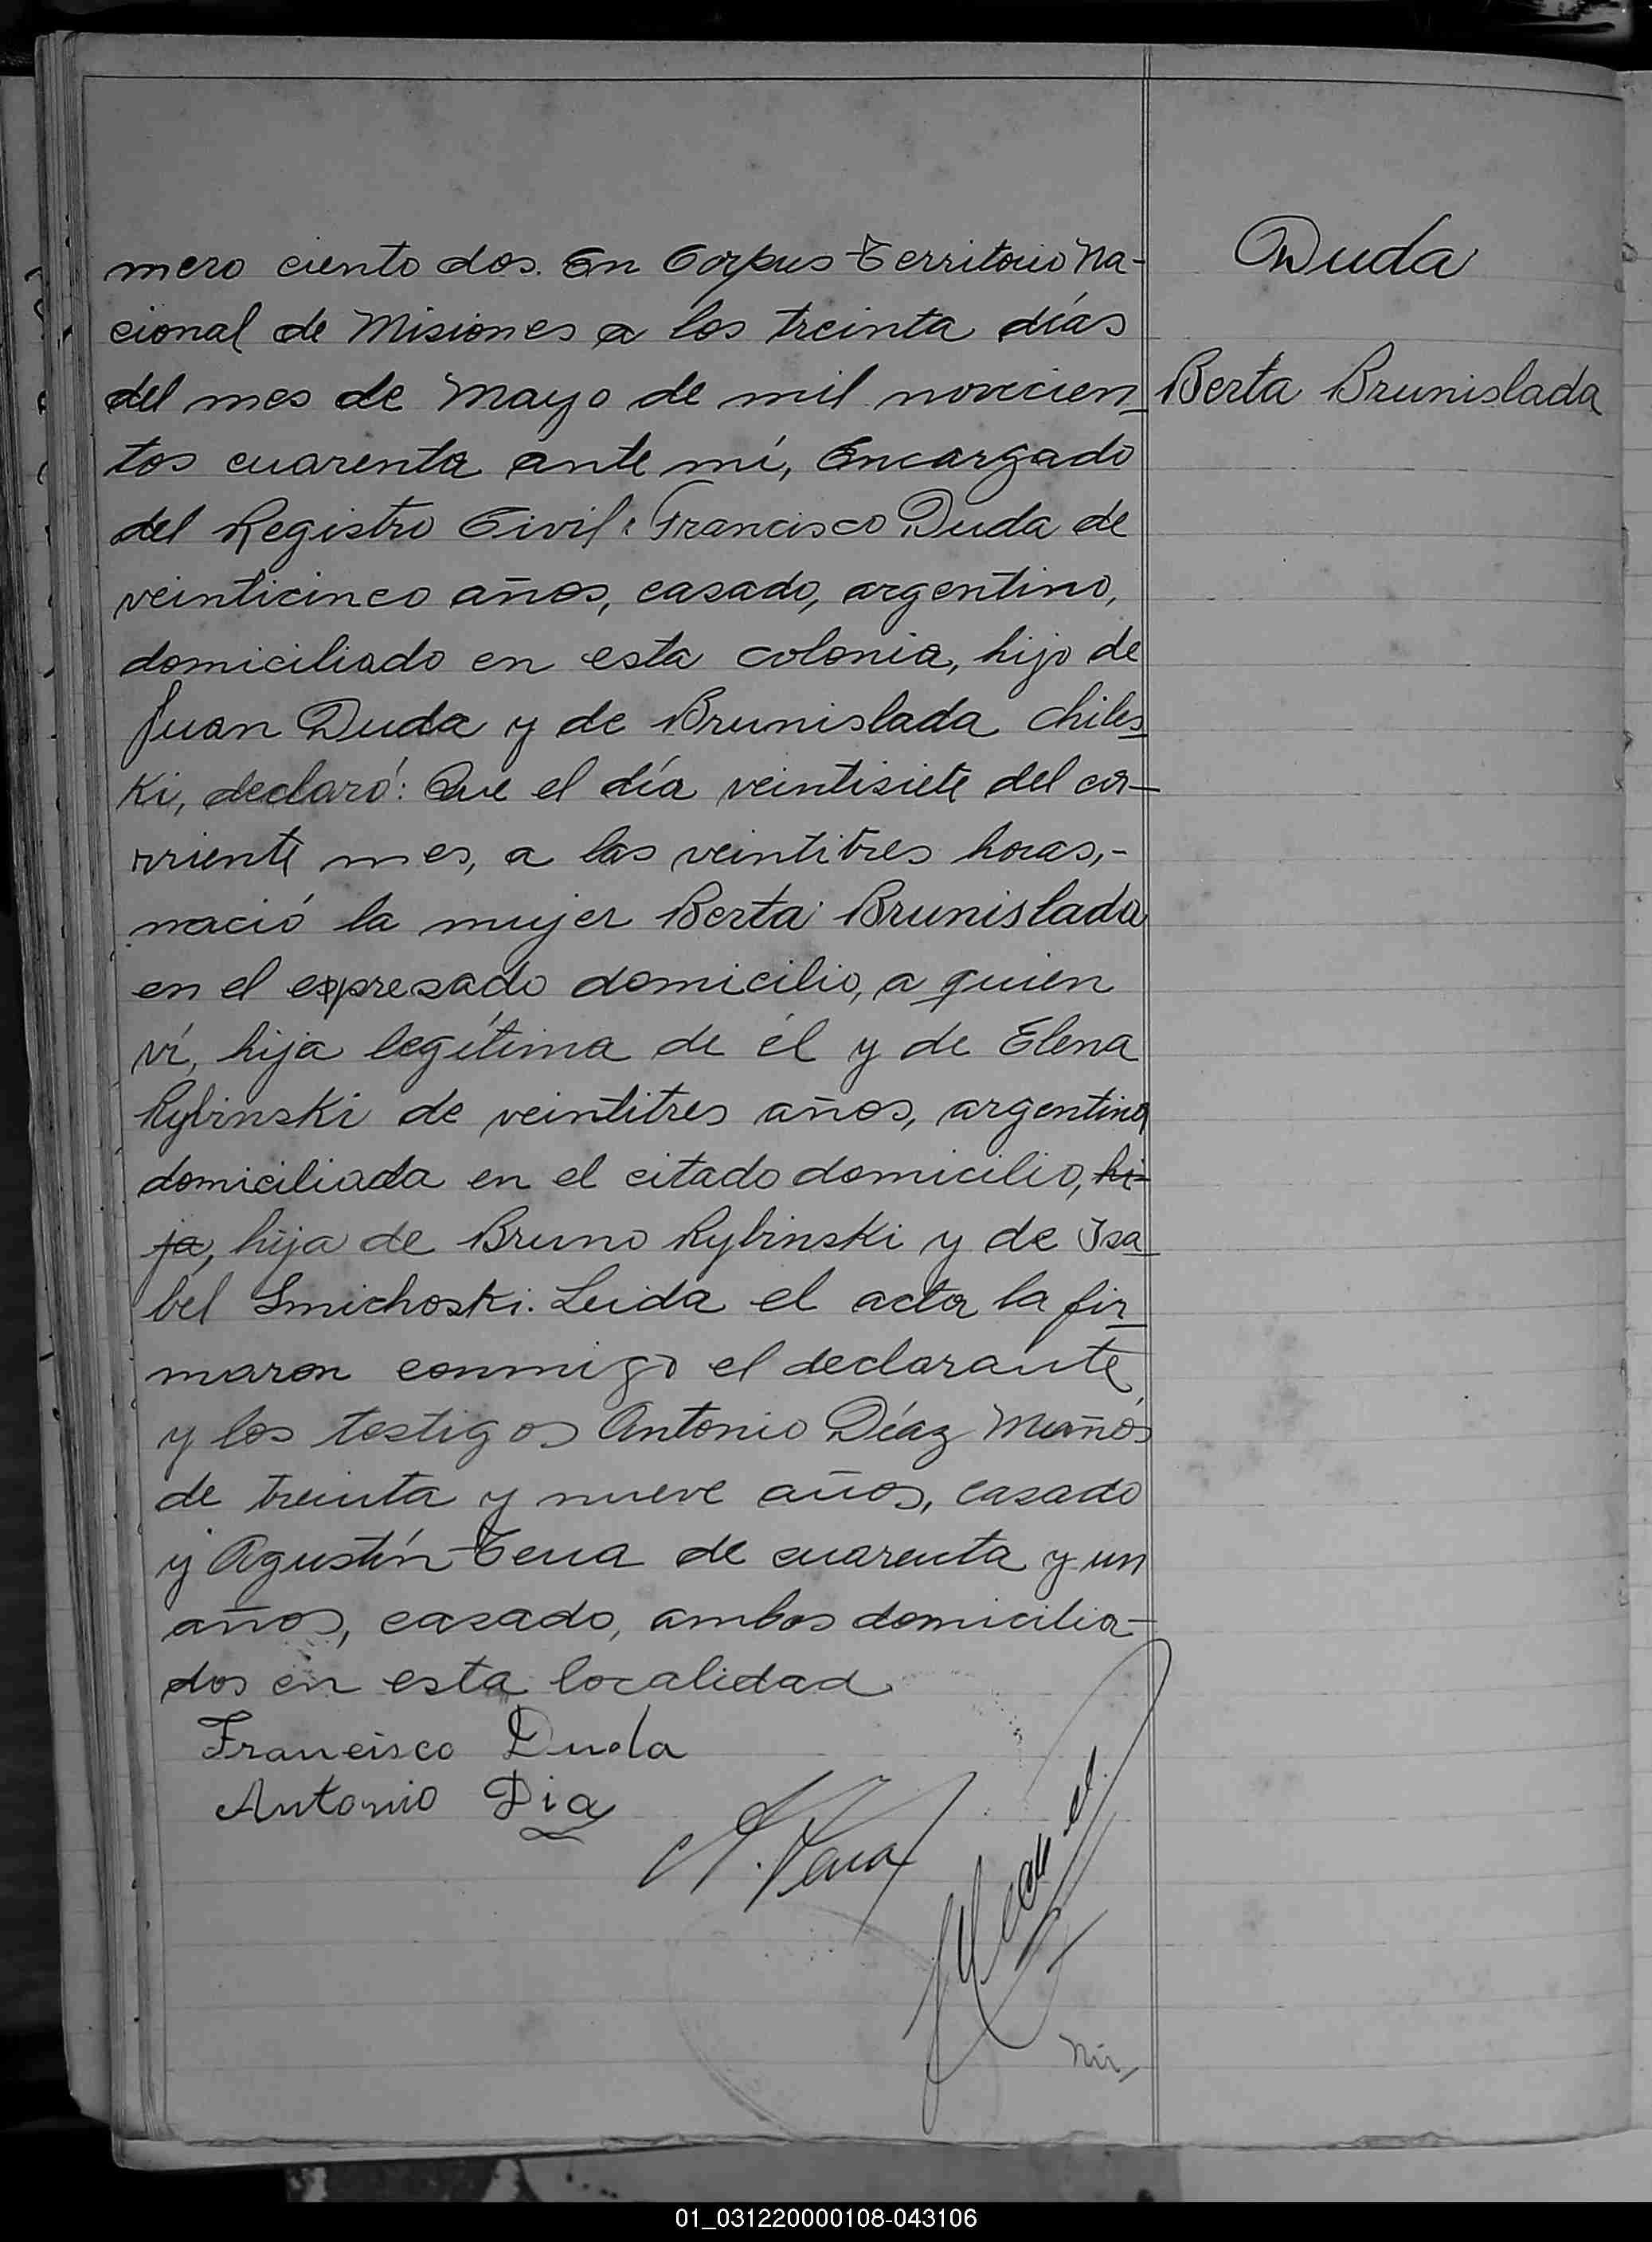 mero ciento dos. En Corpus Territorio Na-
cional de Misiones a los treinta días
del mes de Mayo de mil novecien
tos cuarenta ante mí, Encargado
del Registro Civil: Francisco Duda de
veinticinco años, casado, argentino,
domiciliado en esta colonia, hijo de
Juan Duda y de Brunislada Chiles
Ki, declaró: Que el día veintisiete del cor-
rriente mes, a las veintitres horas,-
nació la mujer Berta Brunislada
en el expresado domicilio, a quien
ví, hija legítima de él y de Elena
Rybinski de veintitres años, argentina
domiciliada en el citado domicilio, hi-
ja, hija de Bruno Rybinski y de Isa
bel Smichoski. Leida el acta la fir
maron conmigo el declarante
y los testigos Antonio Díaz Muñós
de treinta y nueve años, casado
y Agustín Tena de cuarenta y un
años, casado, ambos domicilia-
dos en esta localidad
Duda
Berta Brunislada
Francisco Duda
Antonio Dia
A. Tena
01_031220000108-043106